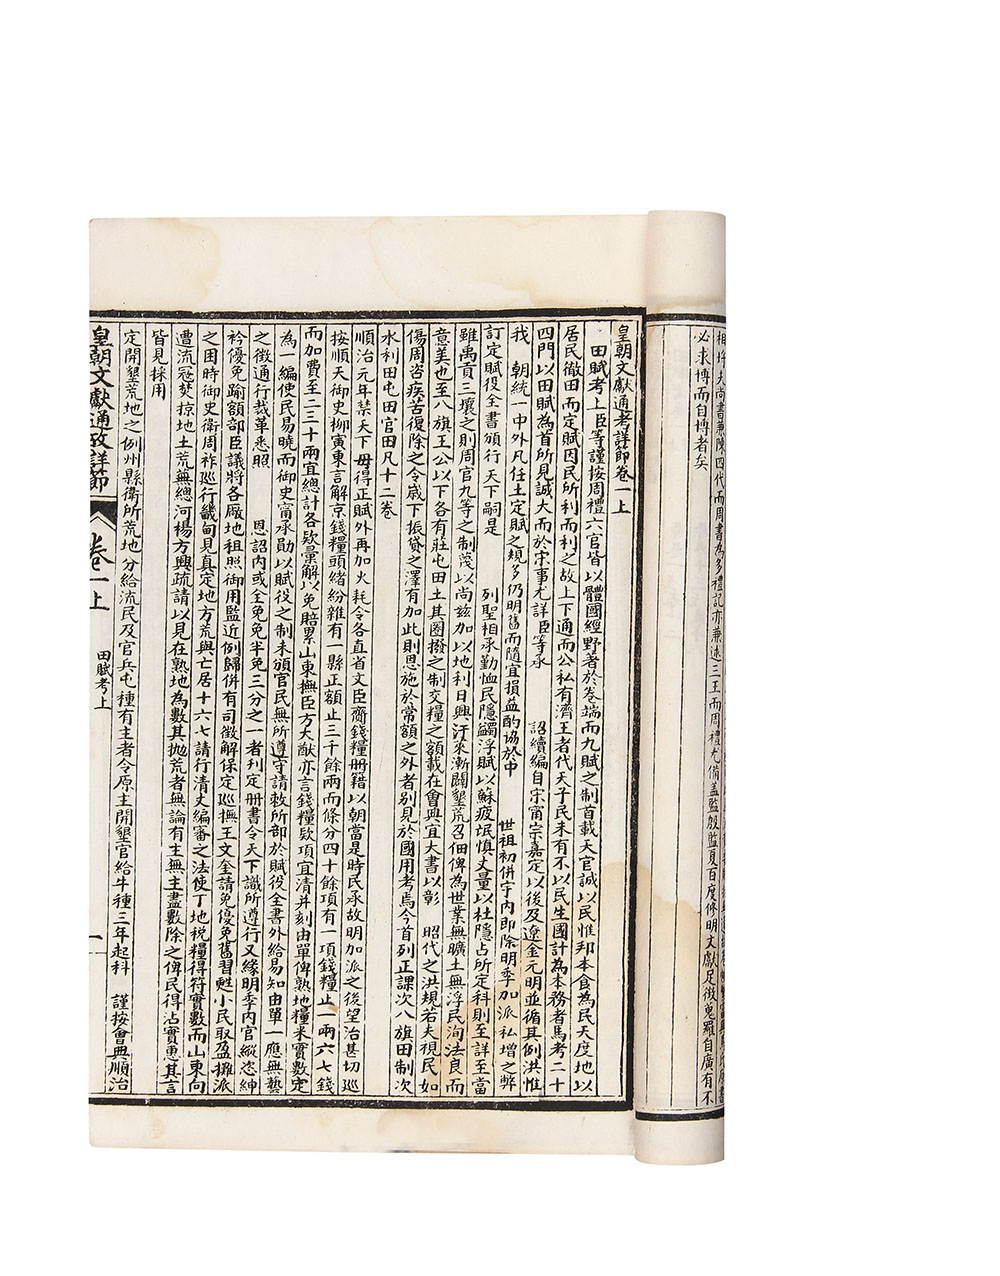 必求博而自博者矣
皇朝文獻通考詳節卷一上
田賦考上臣等謹按周禮六官皆以體國經野著於卷端而九賦之制首載天官誠以民惟邦本食為民天度地以
居民徹田而定賦因民所利而利之故上下通而公私有濟王者代天子民未有不以民生國計為本務者馬考二十
四門以田賦為首所見誠大而於宋事尤詳臣等承 詔續編自宋甯宗嘉定以後及遼金元明並循其例洪惟
我 朝統一中外凡任土定賦之規多仍明舊而隨宜損益酌協於中 世祖初併宇內即除明季加派私增之弊
訂定賦役全書頒行天下嗣是 列聖相承勤恤民隱蠲浮賦以蘇疲氓慎丈量以杜隱占所定科則至詳至當
雖禹貢三壤之則周官九等之制蔑以尚茲加以地利日興汙萊漸闢墾荒召佃俾為世業無曠土無浮民洵法良而
意美也至八旗王公以下各有莊屯田土其圈撥之制交糧之額載在會典宜大書以彰 昭代之洪規若夫視民如
傷周咨疾苦復除之令歲下振貸之澤有加此則恩施於常額之外者別見於國用考焉今首列正課次八旗田制次
水利田屯田官田凡十二卷
順治元年禁天下毋得正賦外再加火耗令各直省文臣齎錢糧冊籍以朝當是時民承故明加派之後望治甚切巡
按順天御史柳寅東言解京錢糧頭緒紛雜有一縣正額止三千餘兩而條分四十餘項有一項錢糧止一兩六七錢
而加費至二三十兩宜總計各欵彙解以免賠累山東撫臣方大猷亦言錢糧欵項宜清并刻由單俾熟地糧米實數定
為一編使民易曉而御史甯承勛以賦役之制未頒官民無所遵守請敕所部於賦役全書外給易知由單一應無藝
之徵通行裁革悉照 恩詔內或全免免半免三分之一者刊定冊書令天下識所遵行又緣明季內官縱恣紳
衿優免踰額部臣議將各廠地租照御用監近例歸併有司徵解保定巡撫王文奎請免優免舊習甦小民取盈攤派
之困時御史衛周祚巡行畿甸見真定地方荒與亡居十六七請行清丈編審之法使丁地稅糧得符實數而山東向
遭流寇焚掠地土荒蕪總河楊方興疏請以見在熟地為數其拋荒者無論有主無主盡數除之俾民得沾實惠其言
皆見採用
定開墾荒地之例州縣衛所荒地分給流民及官兵屯種有主者令原主開墾官給牛種三年起科 謹按會典順治
皇朝文獻通攷詳節 卷一上 田賦考上 一